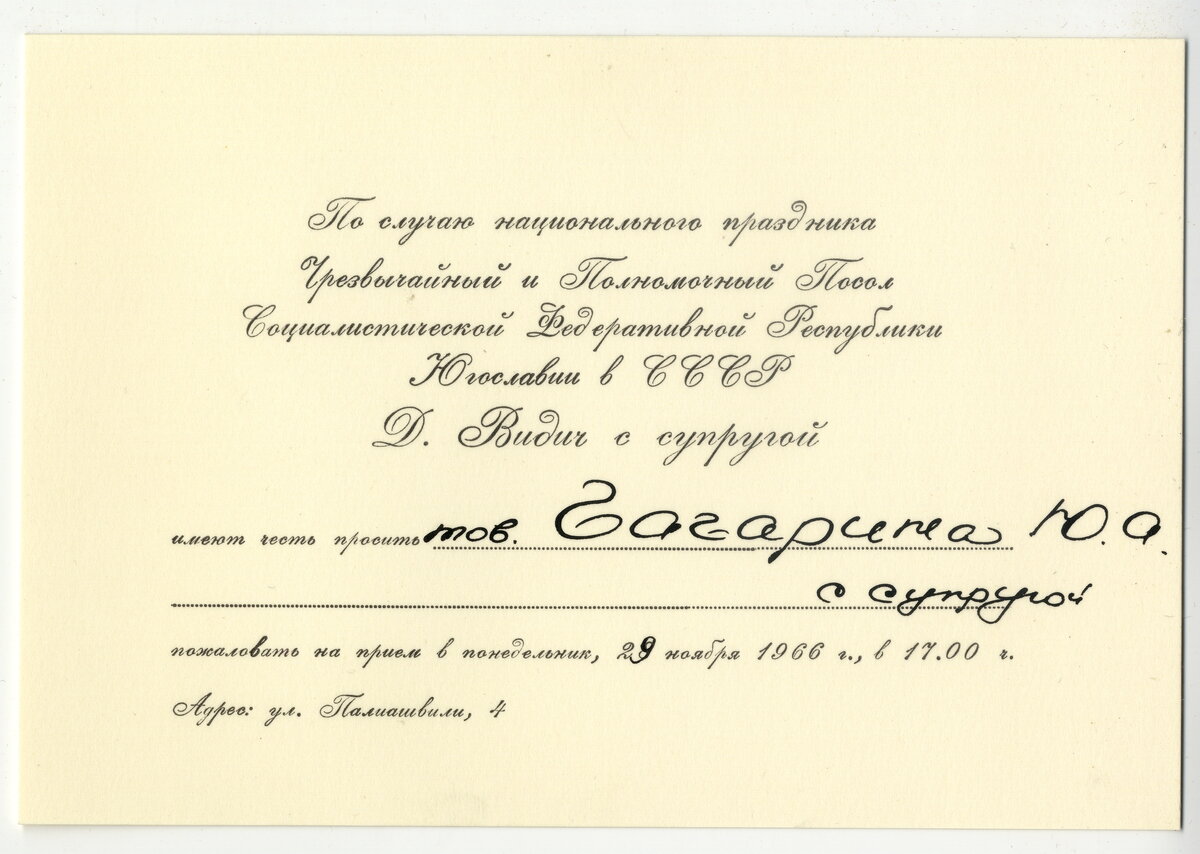 По случаю национального праздника
Чрезвычайный и Полномочный Посол
Социалистической Федеративной Республики
Югославии в СССР
Д. Видич с супругой
имеют честь просить тов. Гагарина Ю.А.
с супругой
пожаловать на прием в понедельник, 29 ноября 1966 г., в 17.00 ч.
Адрес: ул. Палиашвили, 4